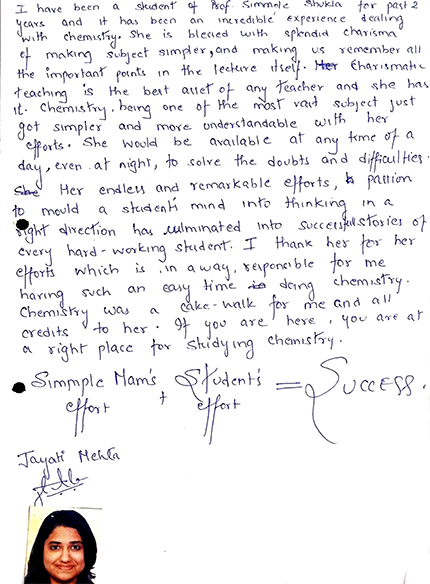 I have been a student of Prof. Simmple Shukla for past 2
years and it has been an incredible experience dealing
with chemistry. She is blessed with splendid charisma
of making subject simpler, and making us remember all
the important points in the lecture itself. Her Charismatic
teaching is the best asset of any teacher and she has
it. Chemistry, being one of the most vast subject just
got simpler and more understandable with her
efforts. She would be available at any time of a
day, even at night, to solve the doubts and difficulties.
She Her endless and remarkable efforts, & passion
to mould a students' mind into thinking in a
right direction has culminated into successful stories of
every hard-working student. I thank her for her
efforts which is, in a way, responsible for me
having such an easy time doing chemistry.
Chemistry was a cake-walk for me and all
credits to her. If you are here, you are at
a right place for studying chemistry.
Simmple Mam's + Student's = SUCCESS.
effort effort
Jayati Mehta